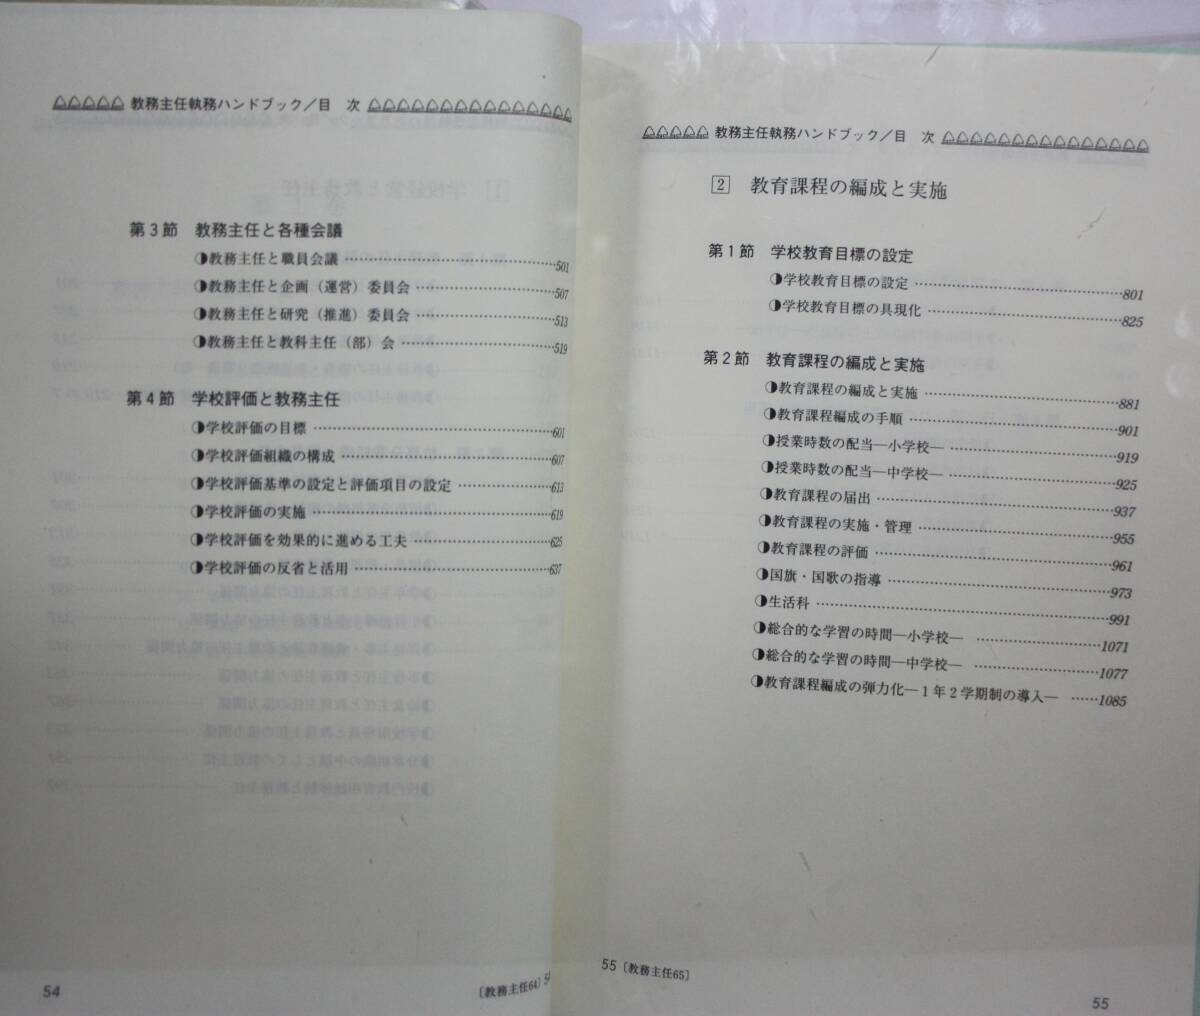 教務主任執務ハンドブック／目　次
第3節　教務主任と各種会議
◑教務主任と職員会議……………501
◑教務主任と企画（運営）委員会……………507
◑教務主任と研究（推進）委員会……………513
◑教務主任と教科主任（部）会……………519
第4節　学校評価と教務主任
◑学校評価の目標……………601
◑学校評価組織の構成……………607
◑学校評価基準の設定と評価項目の設定……………613
◑学校評価の実施……………619
◑学校評価を効果的に進める工夫……………625
◑学校評価の反省と活用……………637
54
〔教務主任64〕
教務主任執務ハンドブック／目　次
2　教育課程の編成と実施
第1節　学校教育目標の設定
◑学校教育目標の設定……………801
◑学校教育目標の具現化……………825
第2節　教育課程の編成と実施
◑教育課程の編成と実施……………881
◑教育課程編成の手順……………901
◑授業時数の配当―小学校―……………919
◑授業時数の配当―中学校―……………925
◑教育課程の届出……………937
◑教育課程の実施・管理……………955
◑教育課程の評価……………961
◑国旗・国歌の指導……………973
◑生活科……………991
◑総合的な学習の時間―小学校―……………1071
◑総合的な学習の時間―中学校―……………1077
◑教育課程編成の弾力化―1年2学期制の導入―……1085
55〔教務主任65〕
55